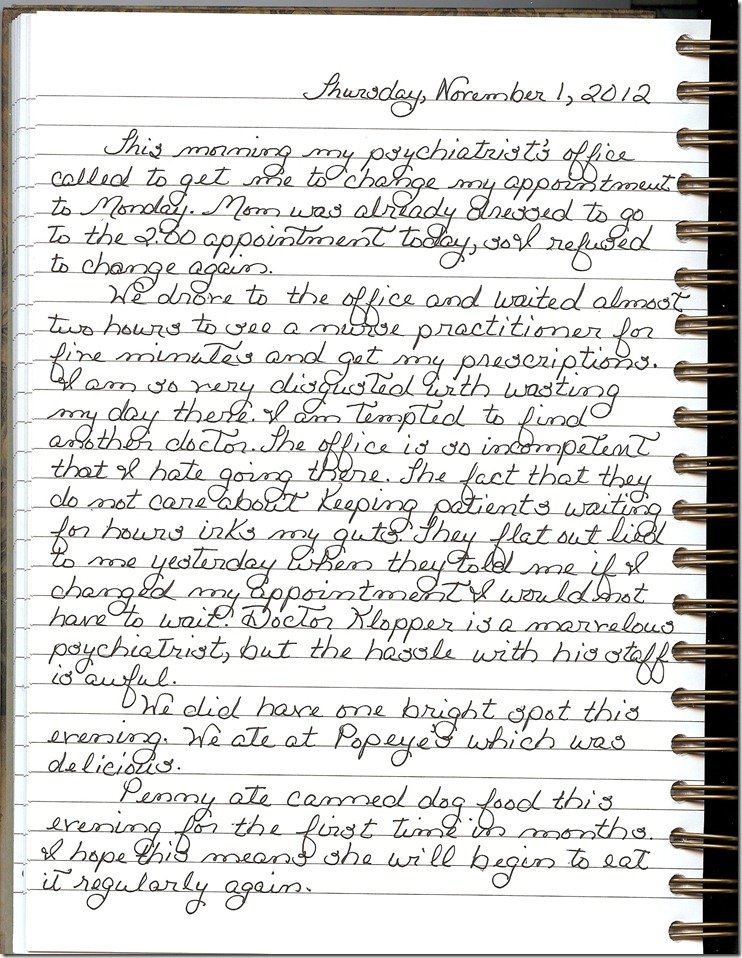 Thursday, November 1, 2012
This morning my psychiatrist's office
called to get me to change my appointment
to Monday. Mom was already dressed to go
to the 2:00 appointment today, so I refused
to change again.
We drove to the office and waited almost
two hours to see a nurse practitioner for
five minutes and get my prescriptions.
I am so very disgusted with wasting
my day there. I am tempted to find
another doctor. The office is so incompetent
that I hate going there. The fact that they
do not care about keeping patients waiting
for hours irks my guts. They flat out lied
to me yesterday when they told me if I
changed my appointment I would not
have to wait. Doctor Klopper is a marvelous
psychiatrist, but the hassle with his staff
is awful.
We did have one bright spot this
evening. We ate at Popeye's which was
delicious.
Penny ate canned dog food this
evening for the first time in months.
I hope this means she will begin to eat
it regularly again.